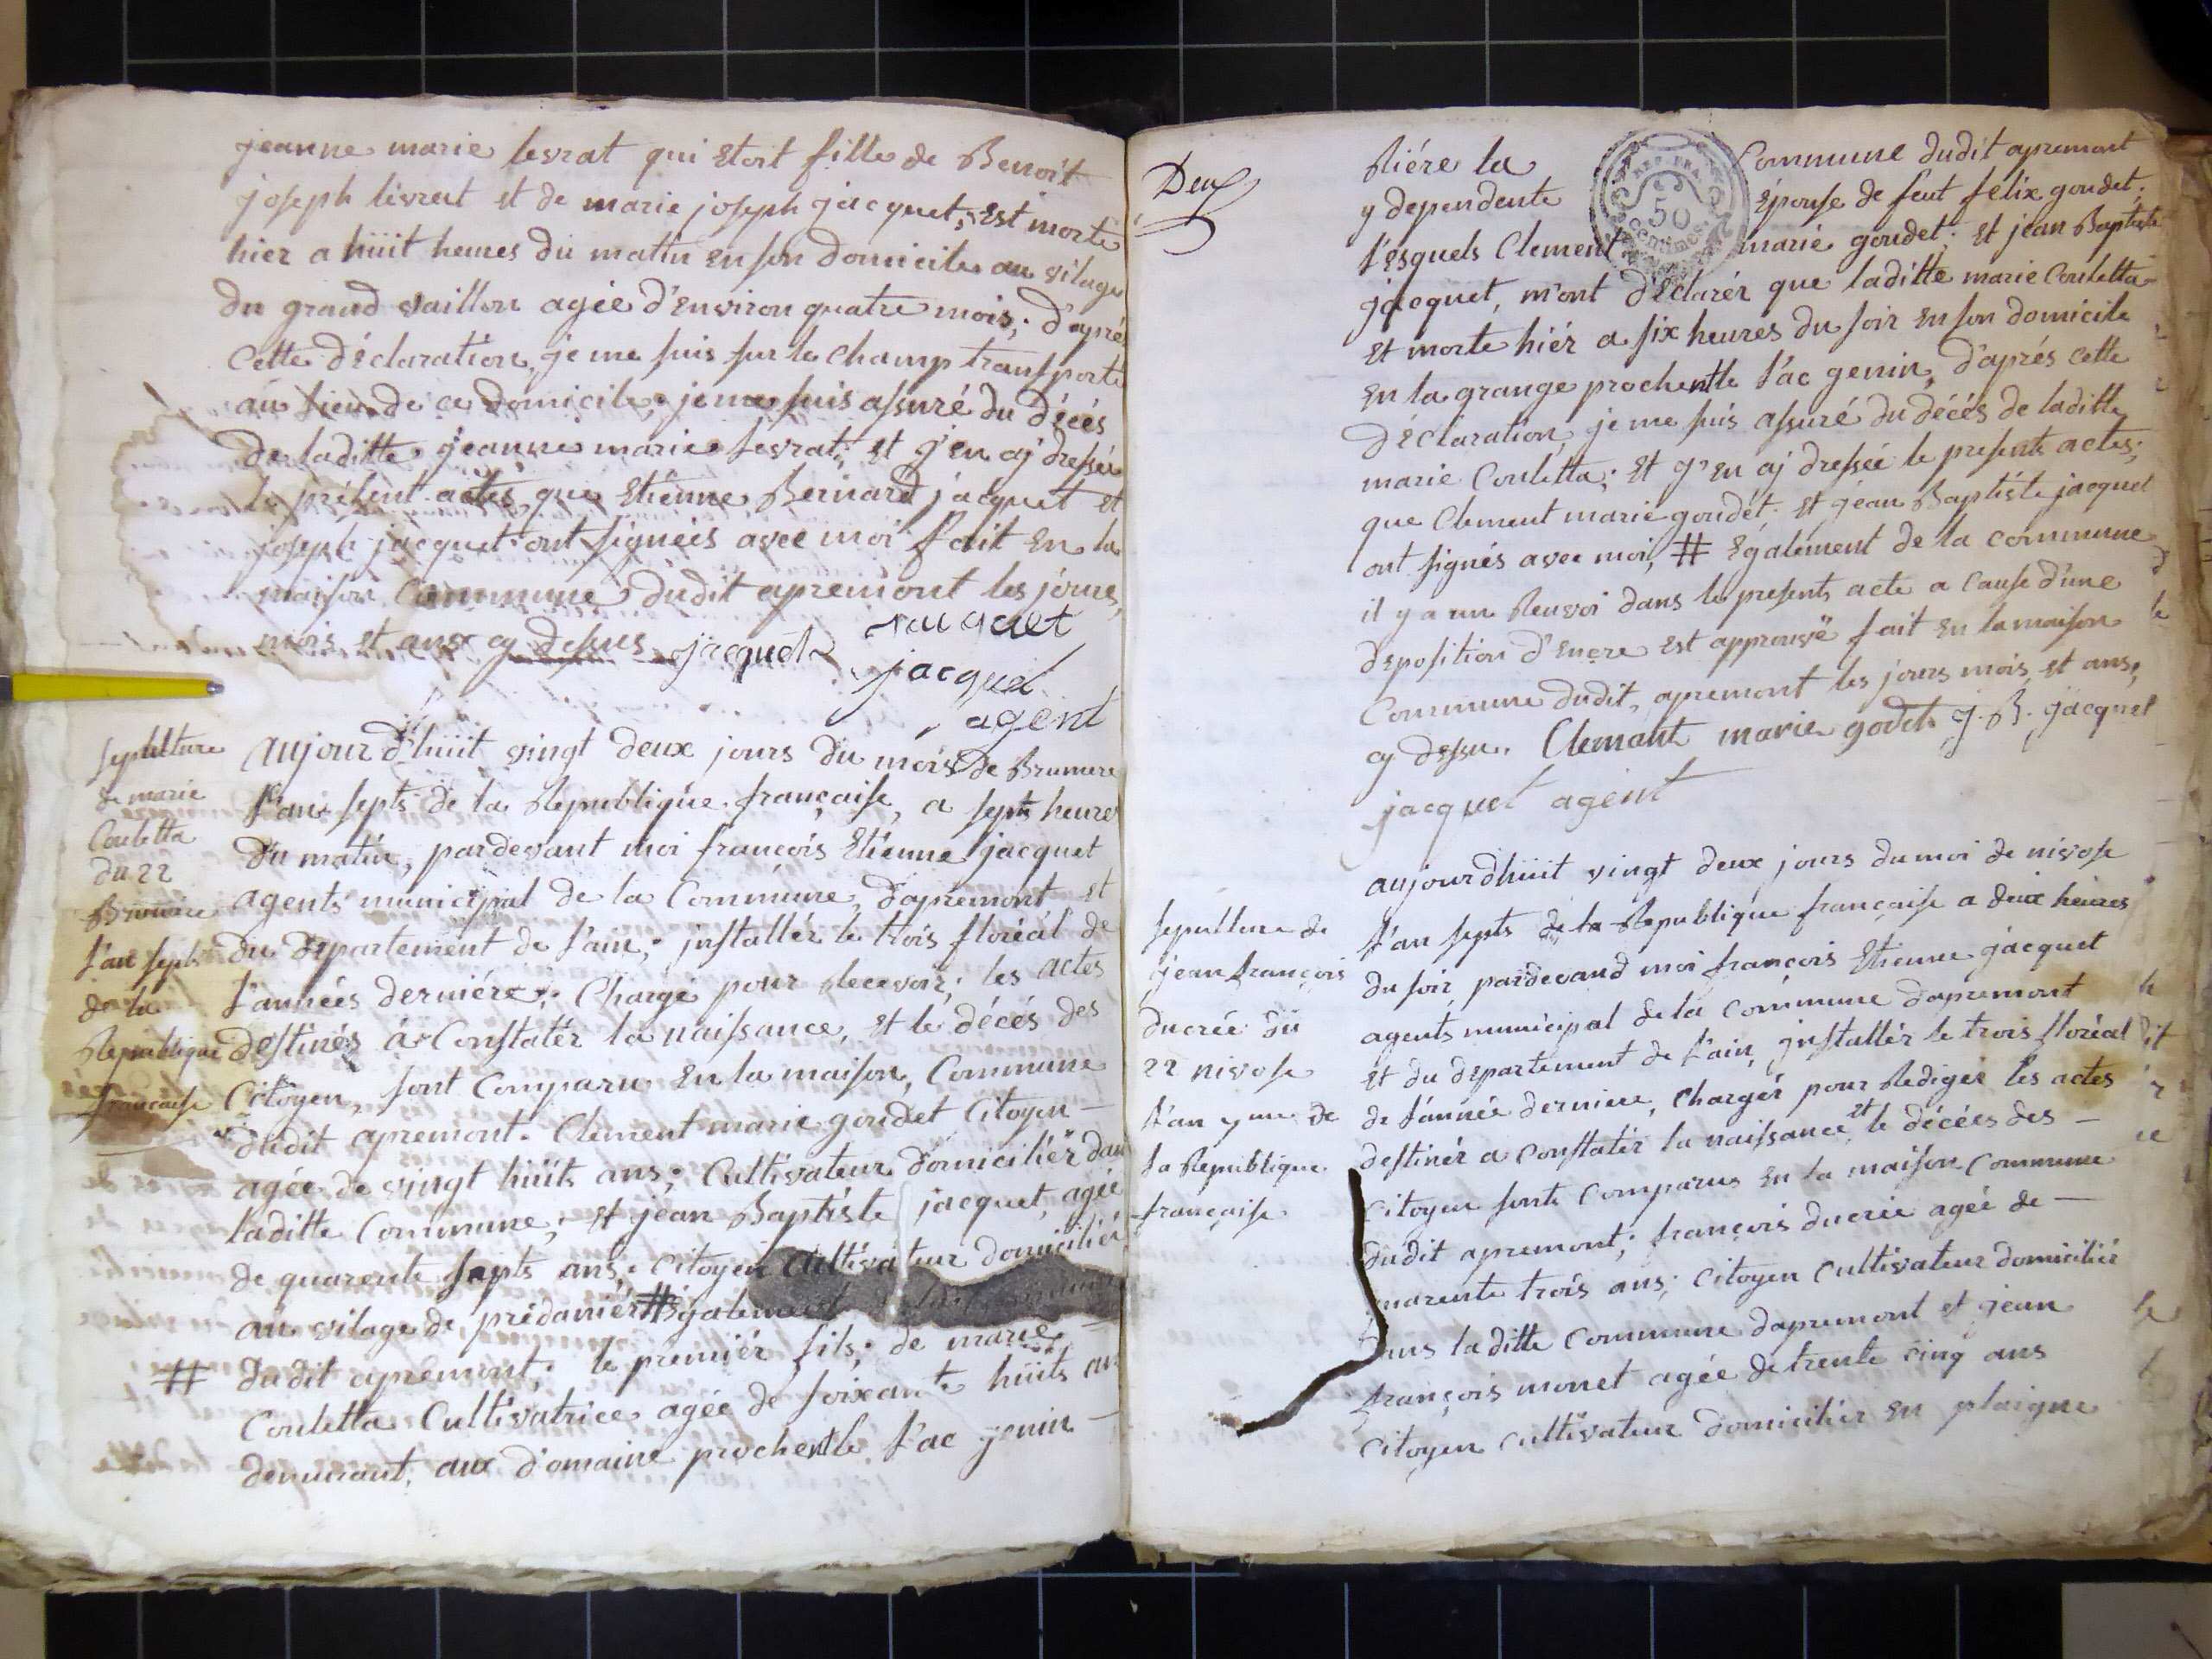 jeanne marie levrat qui Etoit fille de Benoît
joseph levrat et de marie joseph jacquet, Est morte
hier a hüit heures du matin En son domicile au vilage
du grand vaillon agée d'Environ quatre mois; d'aprés
Cette déclaration, je me suis sur le Champ transporté
au lieu de ce domicile, je me suis assuré du décés
de laditte jeanne marie levrat; et j'en aj dressée
le présent actes que Etienne Bernard jacquet et
joseph jacquet ont signées avec moi fait En la
maison Commune dudit apremont les jours,
mois et ans cy dessus jacquet jacquet
jacquet
agent
sepulture
de marie
Couletta
du 22
Brumaire
l'an septs
de la
Republique
francaise
aujourd'hüit vingt deux jours du mois de Brumere
l'an septs de la Republique française, a septs heures
du matin, pardevant moi françois Etienne jacquet
agents municipal de la Commune d'apremont et
du departement de l'ain; jnstallér le trois floréal de
l'années derniére; Chargé pour Recevoir; les actes
destinés à Constatér la naissance, et le décés des
Citoyen, sont Comparu En la maison, Commune
dudit apremont. Clement marie goudet Citoyen
agée de vingt hüits ans; Cultivateur domiciliér dans
laditte Commune; et jean Baptiste jacquet, agée
de quarente septs ans; Citoyen Cultivateur domiciliér
au vilage de prédaniér # Egalement
# dudit apremont; le premiér fils; de marie
Couletta Cultivatrice agée de soixante hüits ans
demurant, aux d'omaine prochentle l'ac genin
Deux
Riére la Commune dudit apremont
y dependente Épouse de feut felix goudet;
l'esquels Clement marie goudet; Et jean Baptiste
jacquet, m'ont d'Eclarér que laditte marie Couletta
Et morte hiér a six heures du soir En son domicile
En la grange prochentle l'ac genin, d'aprés cette
d'Eclaration, je me suis assuré du décés de laditte
marie Couletta; Et j'en aj dressée le presents actes;
que Clement marie goudet. et jean Baptiste jacquet
ont signés avec moi, # Egalement de la commune
il y a un Renvoi dans le presents acte a Cause d'une
deposition d'Encre est approuvë fait En la maison
Commune dudit, apremont les jours mois, et ans,
cy dessu. Clemant marie godet J. B. jacquet
jacquet agent
sepulture de
jean françois
ducrée dü
22 nivose
l'an 7me de
la Republique
française
aujourdhüit vingt deux jours du moi de nivose
l'an septs de la Republique francaise a deux heures
du soir, pardevand moi françois Etienne jacquet
agents municipal de la commune dapremont
et du departement de l'ain, jnstallér le trois floréal
de l'année derniere, Chargér pour Rediger les actes
destinér a Constatér la naissance et le décées des
Citoyen sonts Comparus En la maison Commune
dudit apremont; françois ducrée agée de
quarente trois ans; Citoyen Cultivateur domiciliér
dans laditte Commune dapremont et jean
françois monet agée de trente cinq ans
Citoyen cultivateur domiciliér En plaigne
REP. FRA.
50
centimes